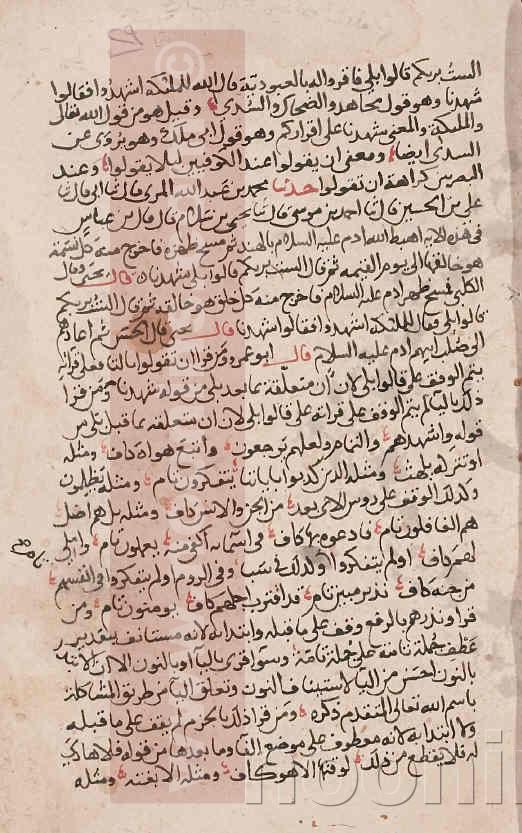 الست بربكم قالوا بلى فاقروا له بالعبودية قال الله للملئكة اشهدوا فقالوا
شهدنا وهو قول مجاهد والضحاك والسدى وقيل هو من قول الله تعالى
والملئكة والمعنى شهدنا على اقراركم وهو قول ابى ملك وهو يروى عن
السدى ايضا ومعنى ان يقولوا عند الكوفيين ليلا يقولوا وعند
البصريين كراهة ان تقولوا حدثنا محمد بن عبد الله المرى قال ثنا ابى قال ثنا
على بن الحسين قال ثنا احمد بن موسى قال ثنا يحيى بن سلام قال قال بن عباس
فى هذه الاية اهبط الله ادم عليه السلام بالهند ثم مسح ظهره فاخرج منه كل نسمة
هو خالقها الى يوم القيمة ثم قال الست بربكم قالوا بلى شهدنا قال يحيى وقال
الكلبى مسح ظهر ادم عليه السلام فاخرج منه كل خلق هو خالقه ثم قال الست بربكم
قالوا بلى فقال للملئكة اشهدوا فقالوا شهدنا قال يحيى قال الحسن ثم اعادهم
الى صلب ابيهم ادم عليه السلام قال ابو عمرو ومن قرا ان تقولوا بالتا فعلى قراته
يتم الوقف على قالوا بلى لان ان متعلقة بما بعد بلى من قوله شهدنا ومن قرا
ذلك باليا لم يتم الوقف على قراته على قالوا بلى لان ان متعلقة بما قبل بلى من
قوله واشهدهم والتمام ولعلهم يرجعون واتبع هواه كاف ومثله
او تتركه يلهث ومثله الذين كذبوا باياتنا يتفكرون تام ومثله يظلمون
وكذلك الوقف على روس الاى بعد من الجن والانس كاف ومثله بل هم اضل
هم الغافلون تام فادعوه بها كاف فى اسمائه اكفى منه يعملون تام واملى
لهم كاف اولم يتفكروا وكذلك فى سبا وفى الروم اولم يتفكروا فى انفسهم
من جنة كاف نذير مبين تام قد اقترب اجلهم كاف يومنون تام ومن
قرا ونذرهم بالرفع وقف على ما قبله وابتدا به لانه مستانف بتقدير
عطف جملة تامة على جملة تامة وسوا قرى باليا او بالنون الا ان الابتدا
بالنون احسن من اليا لاستيناف النون وتعلق اليا من طريق المشاكلة
باسم الله تعالى المتقدم ذكره ومن قرا ذلك بالجزم لم يقف على ما قبله
ولا ابتدا به لانه معطوف على موضع الفا وما بعدها من قوله فلا هادى
له فلا يقطع من ذلك لوقتها الا هو كاف ومثله الا بغتة ومثله
تام
noon